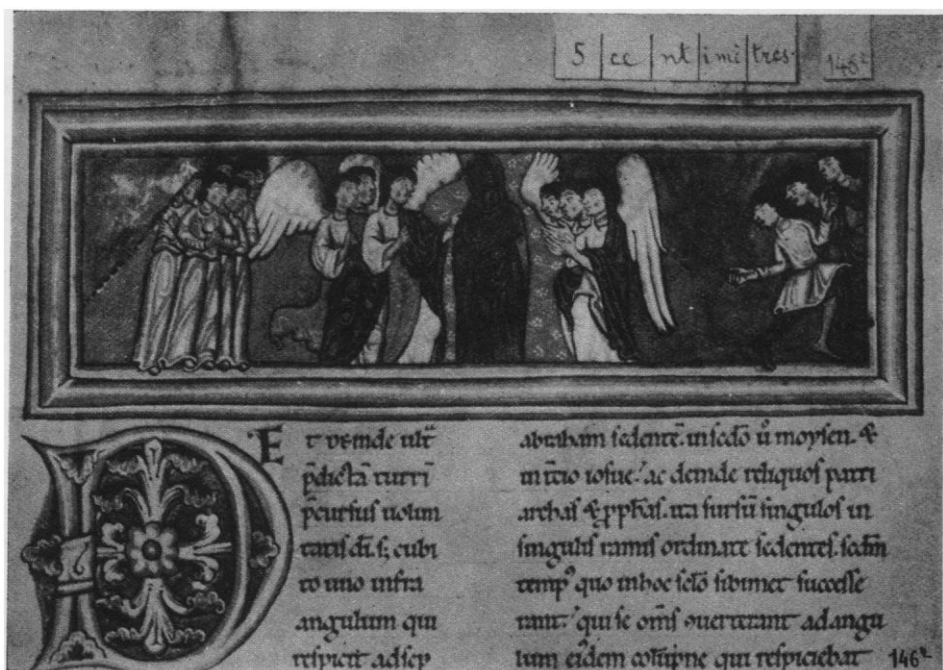 5 | ce | nt | imè | tres. 146ʳ
Et deinde ult̄
p̄dictā turrī
p̄cursus uolun
tatis d̄i. s; cubi
to uno infra
angulum qui
respicit ad sep
abraham sedentē. in scd̄o u̇ moysen. &
in t̄cio iosue. ac deinde reliquos patri
archas & p̱ph̄as. ita sursū singulos in
singulis ramis ordinate sedentes. scdm̄
tempꝰ quo in hoc scl̄o sibimet successe
rant. qui se om̄s ꝯuerterant ad angu
lum eidem colūpne qui respiciebat
146ʳ